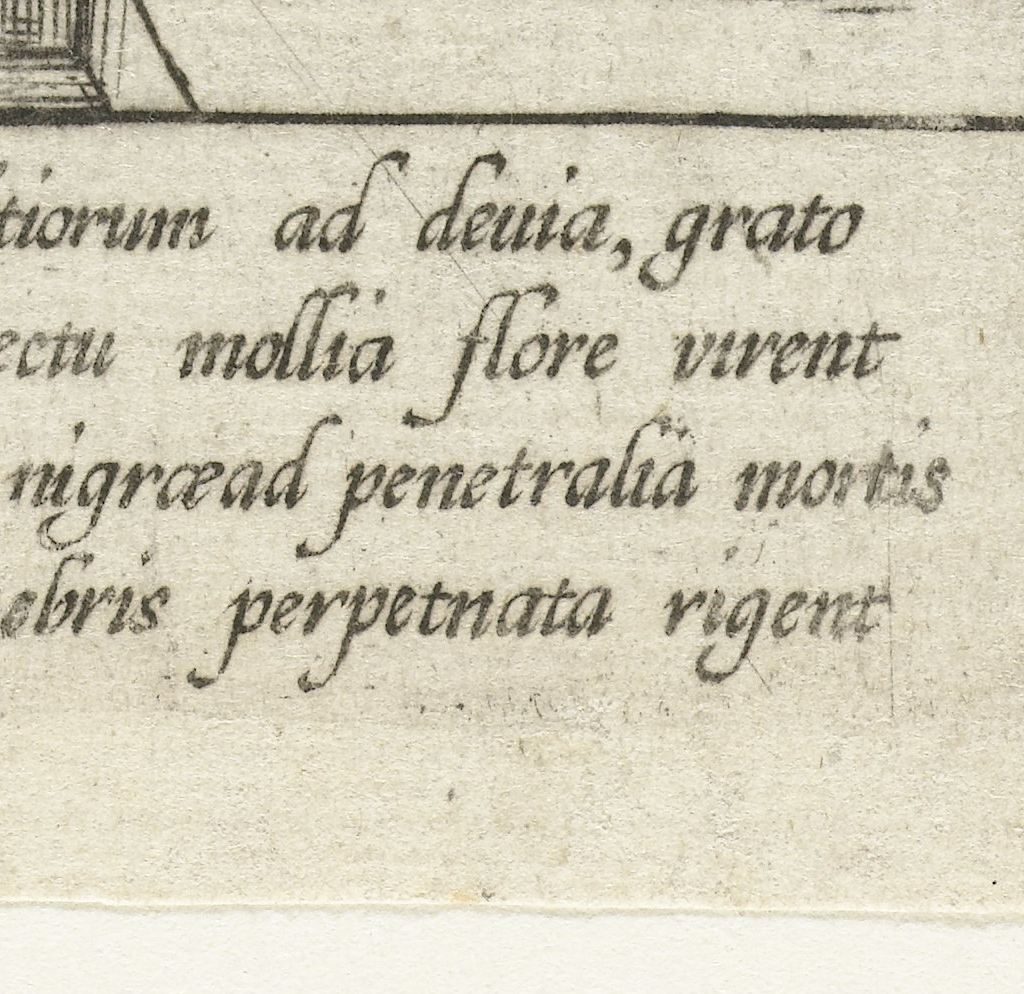 tiorum ad deuia, grato
ectu mollia flore virent
nigræ ad penetralia mortis
ebris perpetnata rigent